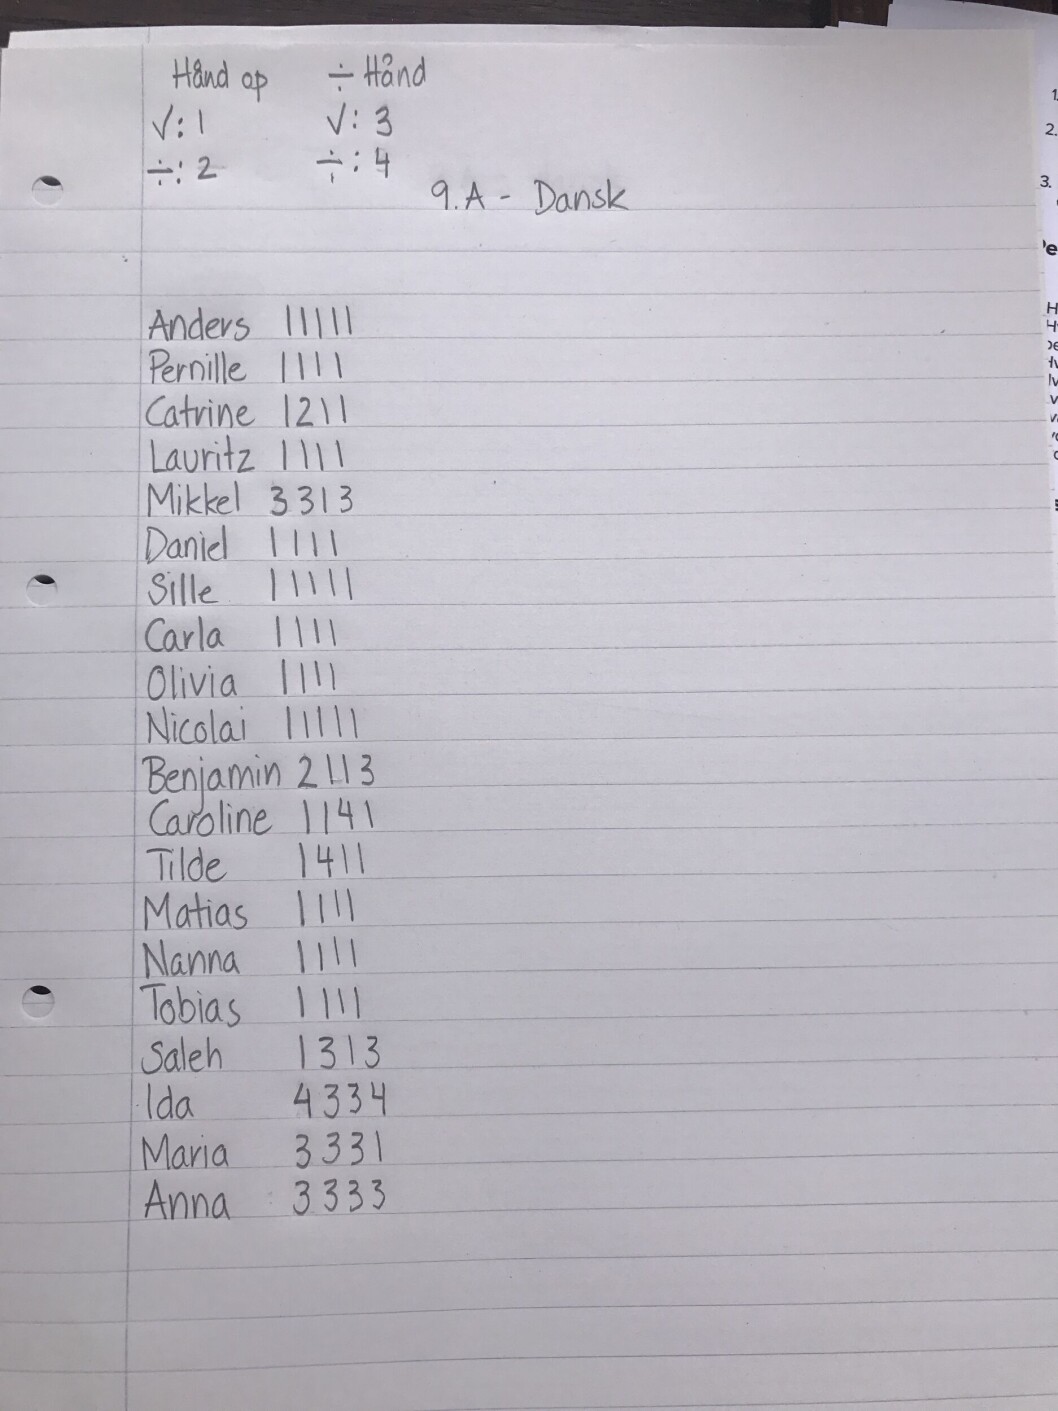 Hånd op ÷ Hånd
√: 1 √: 3
÷: 2 ÷: 4
9.A - Dansk
Anders 11111
Pernille 1111
Catrine 1211
Lauritz 1111
Mikkel 3313
Daniel 1111
Sille 11111
Carla 1111
Olivia 1111
Nicolai 11111
Benjamin 2113
Caroline 1141
Tilde 1411
Matias 1111
Nanna 1111
Tobias 1111
Saleh 1313
Ida 4334
Maria 3331
Anna 3333
1.
2.
3.